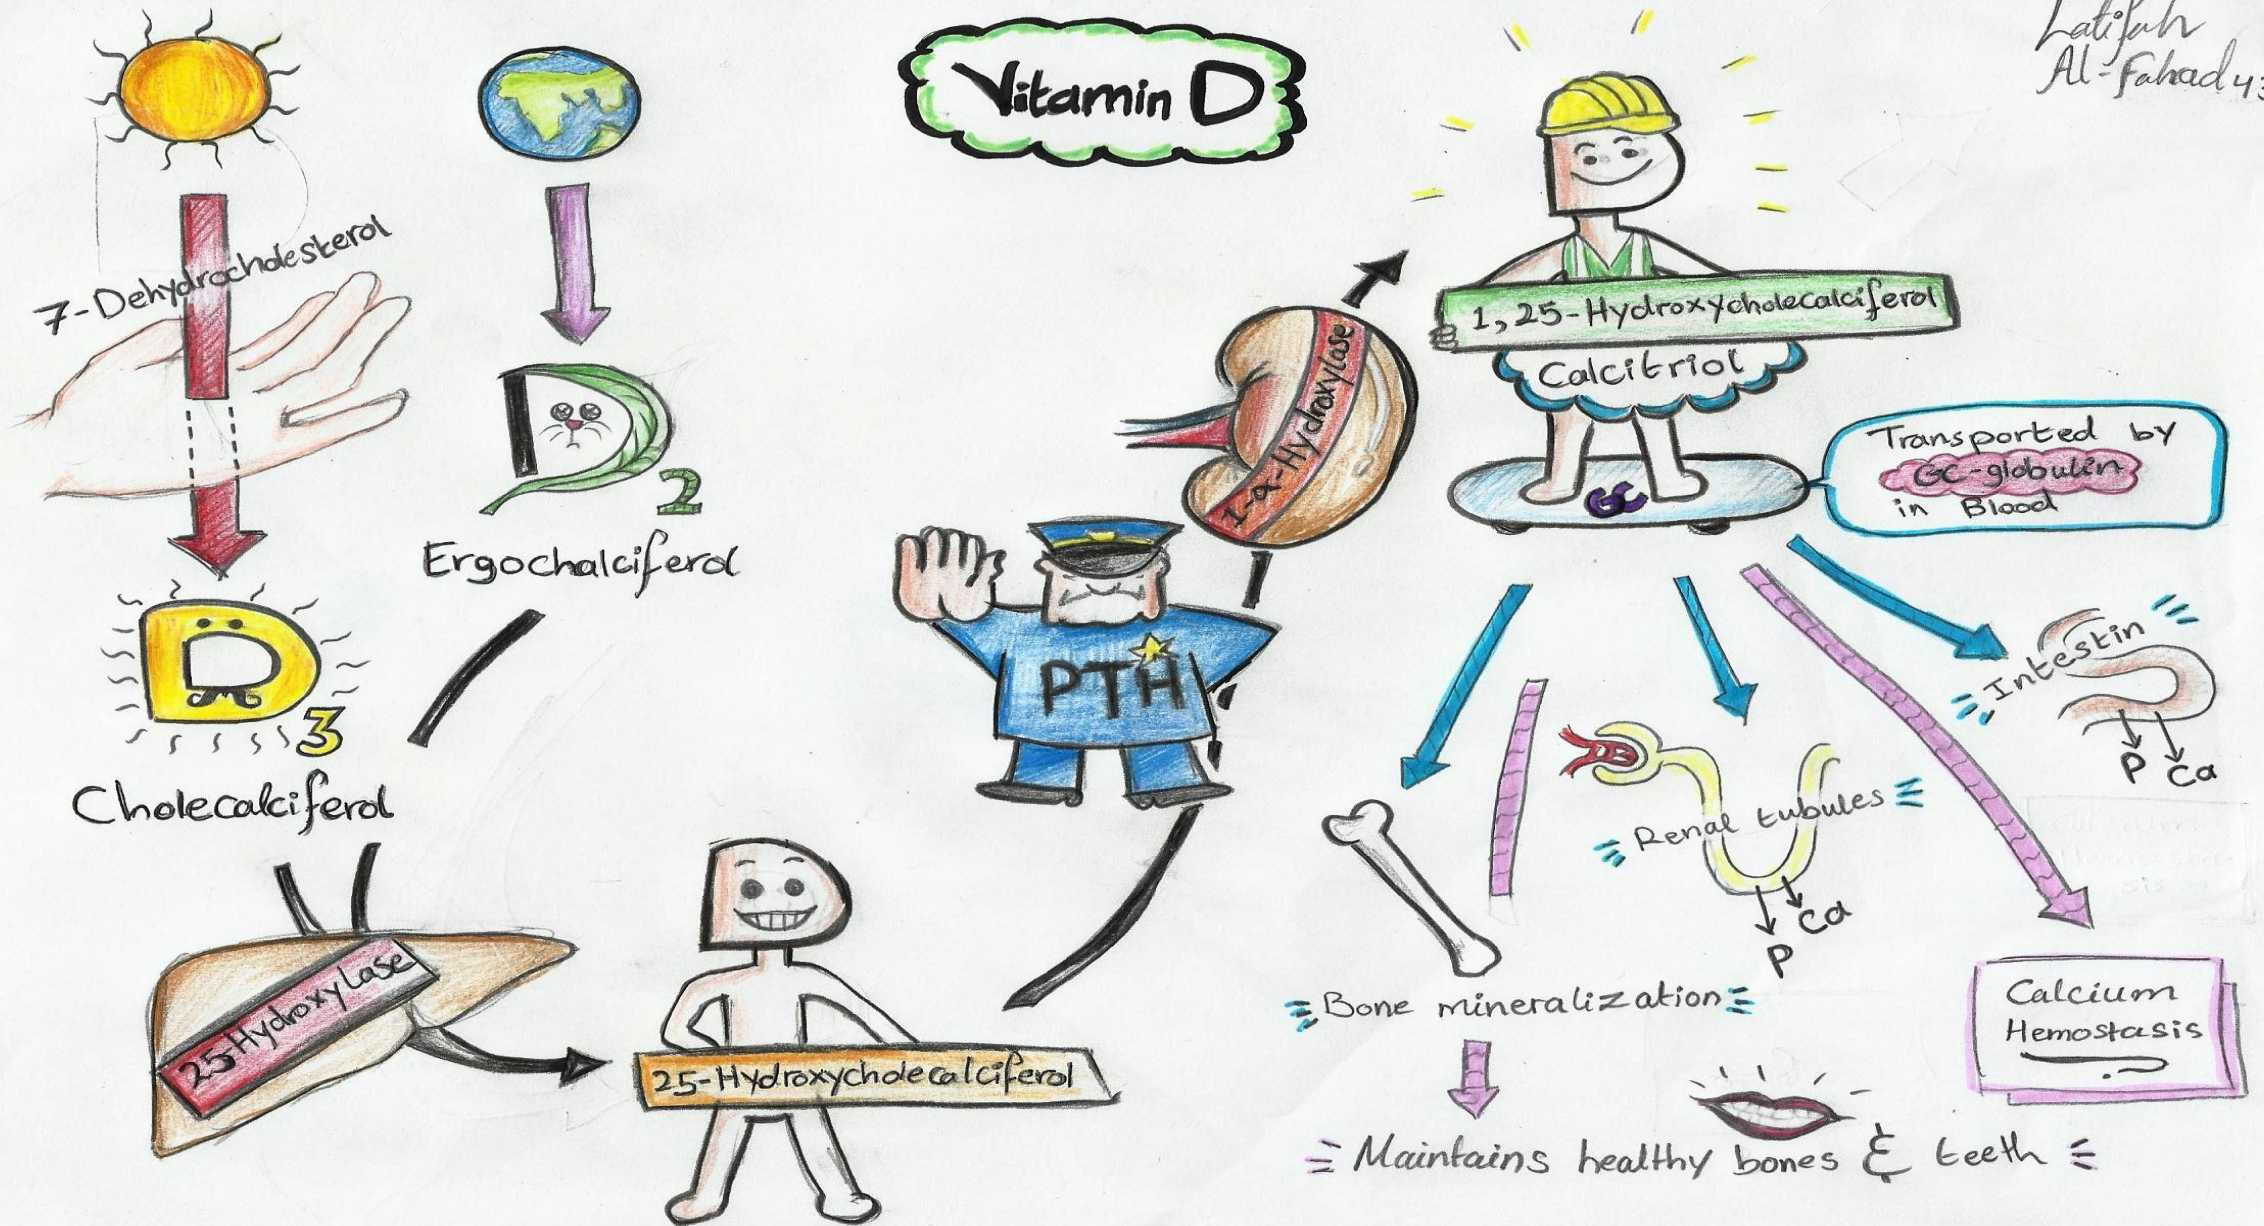 Vitamin D
Latifah
Al-Fahad 43
7-Dehydrocholesterol
D3
Cholecalciferol
D2
Ergochalciferol
25-Hydroxylase
25-Hydroxycholecalciferol
PTH
1-α-Hydroxylase
1,25-Hydroxycholecalciferol
Calcitriol
GC
Transported by
GC-globulin
in Blood
Intestin
P Ca
Renal tubules
P Ca
Bone mineralization
Maintains healthy bones & teeth
Calcium
Hemostasis